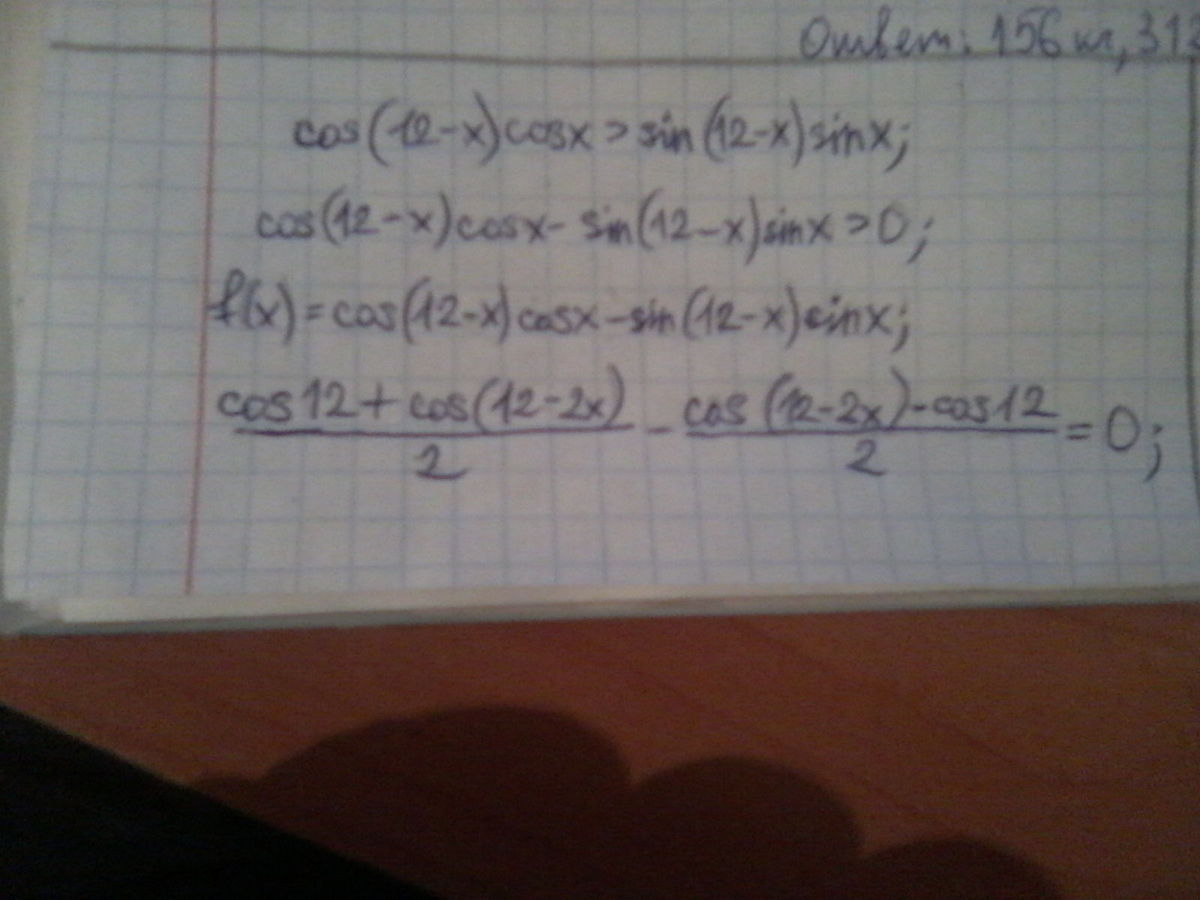 Ответ: 156 м, 313
cos(12-x)cosx>sin(12-x)sinx;
cos(12-x)cosx-sin(12-x)sinx>0;
f(x)=cos(12-x)cosx-sin(12-x)sinx;
cos12+cos(12-2x)/2 - cos(12-2x)-cos12/2 =0;